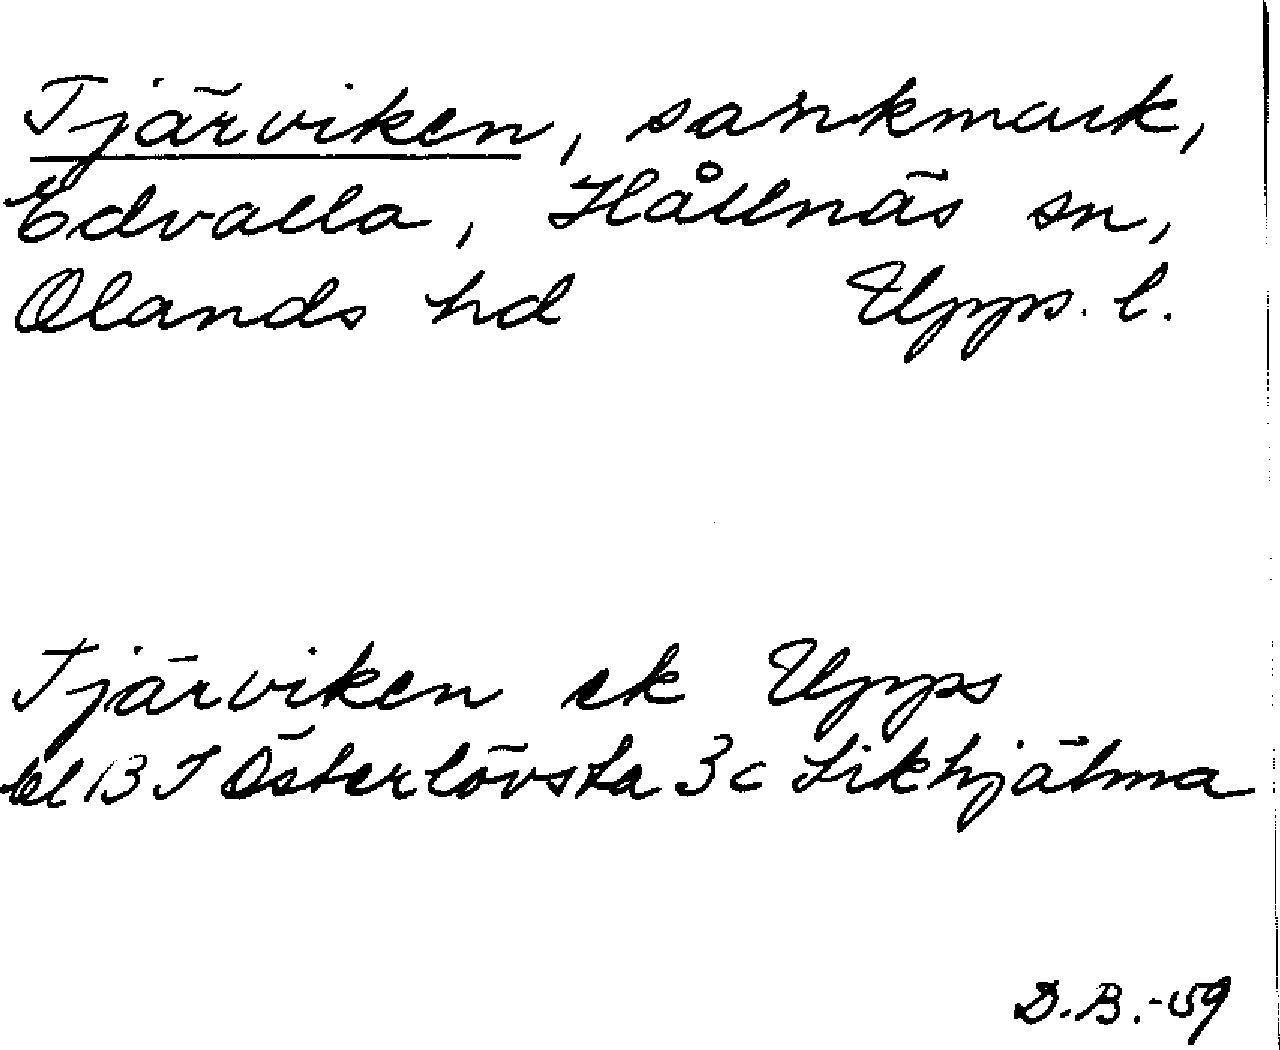 Tjärviken, sankmark,
Edvalla, Hållnäs sn,
Olands hd Upps. l.
Tjärviken ek Upps
bl 13 I Österlövsta 3c Sikhjälma
D.B.-59